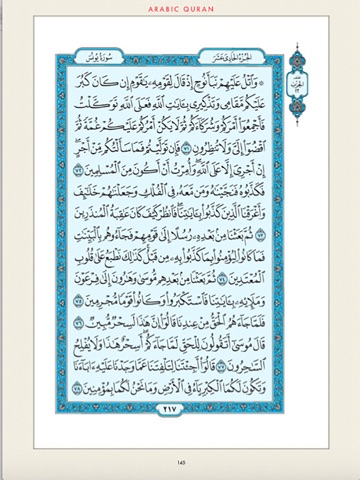 ARABIC QURAN
سُورَةُ يُونُسَ
الجُزْءُ الحَادِي عَشَرَ
۞ وَاتْلُ عَلَيْهِمْ نَبَأَ نُوحٍ إِذْ قَالَ لِقَوْمِهِ يَقَوْمِ إِن كَانَ كَبُرَ
عَلَيْكُم مَّقَامِي وَتَذْكِيرِي بِـَٔايَتِ اللَّهِ فَعَلَى اللَّهِ تَوَكَّلْتُ
فَأَجْمِعُوا أَمْرَكُمْ وَشُرَكَاءَكُمْ ثُمَّ لَا يَكُنْ أَمْرُكُمْ عَلَيْكُمْ غُمَّةً ثُمَّ
اقْضُوا إِلَيَّ وَلَا تُنظِرُونِ ٧١ فَإِن تَوَلَّيْتُمْ فَمَا سَأَلْتُكُم مِّنْ أَجْرٍ
إِنْ أَجْرِيَ إِلَّا عَلَى اللَّهِ وَأُمِرْتُ أَنْ أَكُونَ مِنَ الْمُسْلِمِينَ ٧٢
فَكَذَّبُوهُ فَنَجَّيْنَهُ وَمَن مَّعَهُ فِي الْفُلْكِ وَجَعَلْنَهُمْ خَلَئِفَ
وَأَغْرَقْنَا الَّذِينَ كَذَّبُوا بِـَٔايَتِنَا فَانظُرْ كَيْفَ كَانَ عَقِبَةُ الْمُنذَرِينَ
٧٣ ثُمَّ بَعَثْنَا مِن بَعْدِهِ رُسُلًا إِلَى قَوْمِهِمْ فَجَاءُوهُم بِالْبَيِّنَتِ
فَمَا كَانُوا لِيُؤْمِنُوا بِمَا كَذَّبُوا بِهِ مِن قَبْلُ كَذَلِكَ نَطْبَعُ عَلَى قُلُوبِ
الْمُعْتَدِينَ ٧٤ ثُمَّ بَعَثْنَا مِن بَعْدِهِم مُّوسَى وَهَرُونَ إِلَى فِرْعَوْنَ
وَمَلَإِيهِ بِـَٔايَتِنَا فَاسْتَكْبَرُوا وَكَانُوا قَوْمًا مُّجْرِمِينَ ٧٥
فَلَمَّا جَاءَهُمُ الْحَقُّ مِنْ عِندِنَا قَالُوا إِنَّ هَذَا لَسِحْرٌ مُّبِينٌ ٧٦
قَالَ مُوسَى أَتَقُولُونَ لِلْحَقِّ لَمَّا جَاءَكُمْ أَسِحْرٌ هَذَا وَلَا يُفْلِحُ
السَّحِرُونَ ٧٧ قَالُوا أَجِئْتَنَا لِتَلْفِتَنَا عَمَّا وَجَدْنَا عَلَيْهِ ءَابَاءَنَا
وَتَكُونَ لَكُمَا الْكِبْرِيَاءُ فِي الْأَرْضِ وَمَا نَحْنُ لَكُمَا بِمُؤْمِنِينَ ٧٨
٢١٧
145